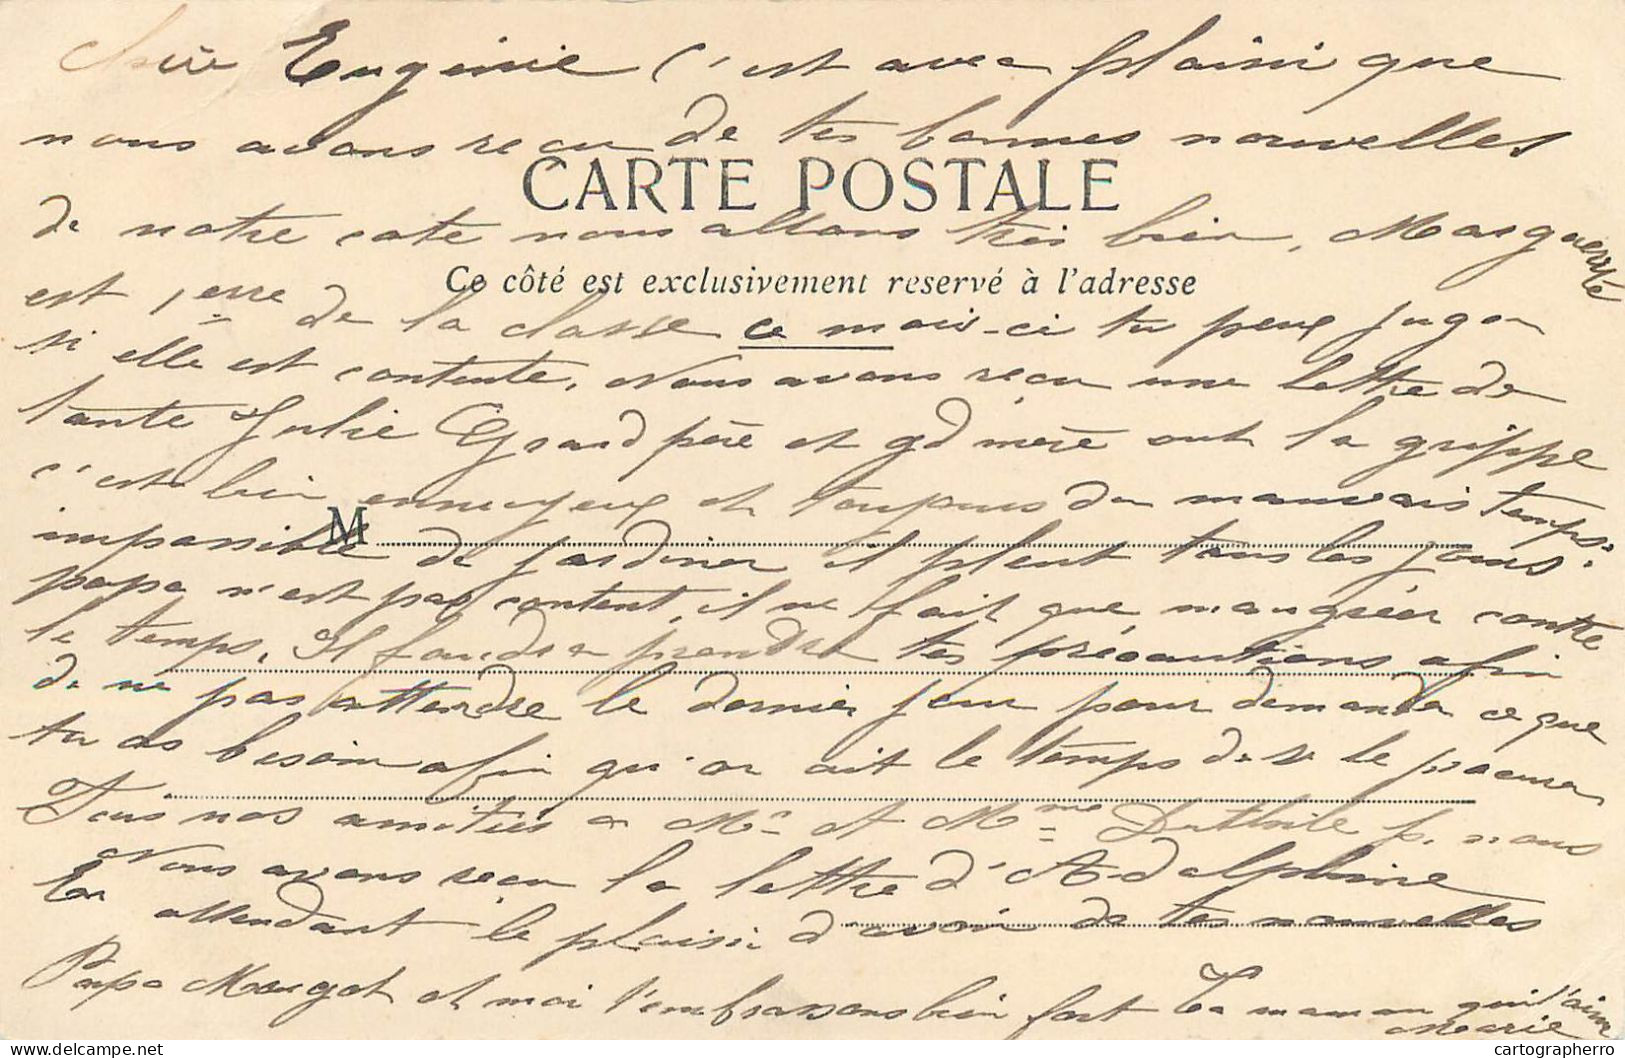 Chère Eugénie C'est avec plaisir que
nous avons reçu de tes bonnes nouvelles
CARTE POSTALE
de notre coté nous allons très bien, Marguerite
Ce côté est exclusivement reservé à l'adresse
est 1ere de la classe ce mois-ci tu peux juger
si elle est contente. Nous avons reçu une lettre de
tante Julie Grand père et gd mère ont la grippe
c'est bien ennuyeux et toujours du mauvais temps
M
impossible de jardiner il pleut tous les jours.
papa n'est pas content, il ne fait que maugréer contre
le temps. Il faudra prendre tes précautions afin
de ne pas attendre le dernier jour pour demander ce que
tu as besoin afin qu'on ait le temps de se le procurer
Tous nos amitiés a Mr et Mme p. nous
Nous avons reçu la lettre d'Adelphine
En attendant le plaisir d'avoir de tes nouvelles
Papa Margot et moi t'embrassons bien fort Ta maman qui t'aime
Marie
delcampe.net
cartographerro